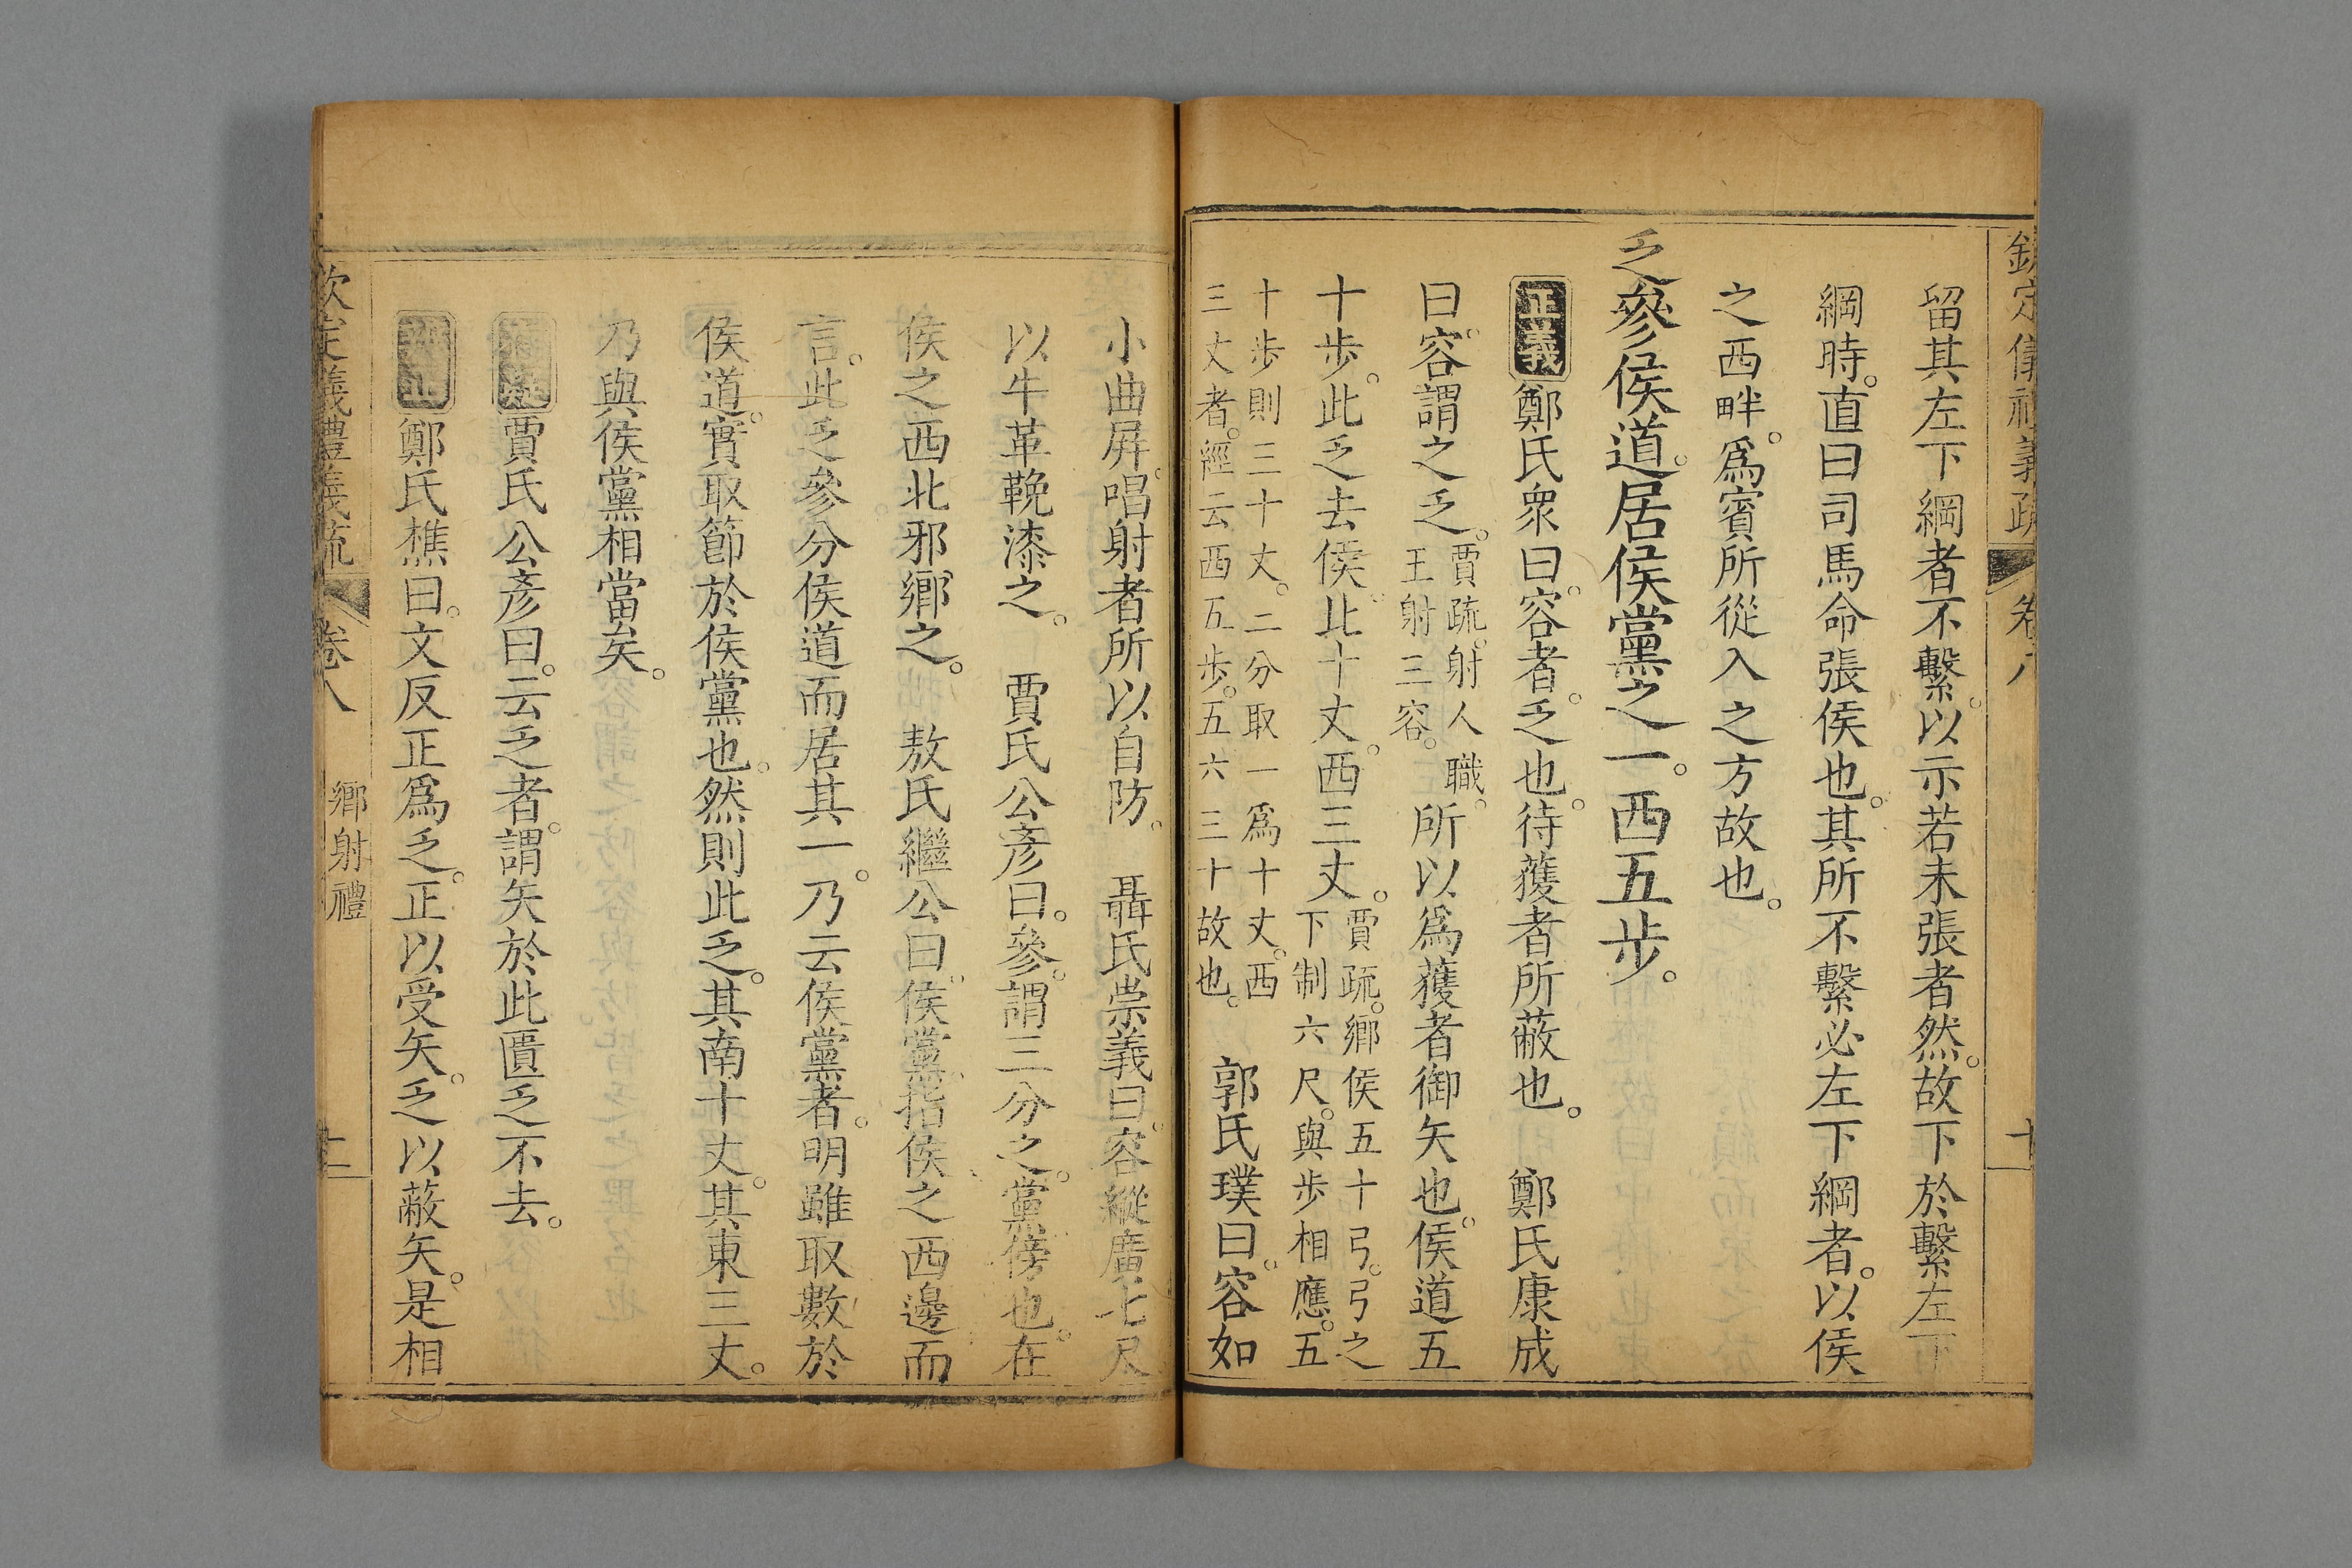 欽定儀禮義疏 卷八
留其左下綱者不繫。以示若未張者然。故下於繫左下
綱時。直曰司馬命張侯也。其所不繫必左下綱者。以侯
之西畔。爲賓所從入之方故也。
乏參侯道。居侯黨之一。西五步。
正義鄭氏衆曰。容者。乏也。待獲者所蔽也。 鄭氏康成
曰。容謂之乏。
賈疏。射人職。
王射三容。
所以爲獲者御矢也。侯道五
十步。此乏去侯。北十丈。西三丈。
賈疏。鄉侯五十弓。弓之
下制六尺。與步相應。五
十步則三十丈。二分取一爲十丈。西
三丈者。經云西五步。五六三十故也。
郭氏璞曰。容如
小曲屛。唱射者所以自防。 聶氏崇義曰。容縱廣七尺
以牛革鞔漆之。 賈氏公彥曰。參。謂三分之。黨傍也。在
侯之西北邪鄉之。 敖氏繼公曰。侯黨。指侯之西邊而
言。此乏參分侯道而居其一。乃云侯黨者。明雖取數於
侯道。實取節於侯黨也。然則此乏。其南十丈。其東三丈。
乃與侯黨相當矣。
賈氏公彥曰。云乏者。謂矢於此匱乏不去。
鄭氏樵曰。文反正爲乏。正以受矢。乏以蔽矢。是相
欽定義禮義疏 卷八 鄉射禮